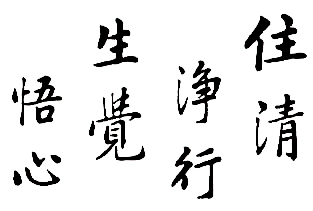 住清
淨行
生覺
悟心